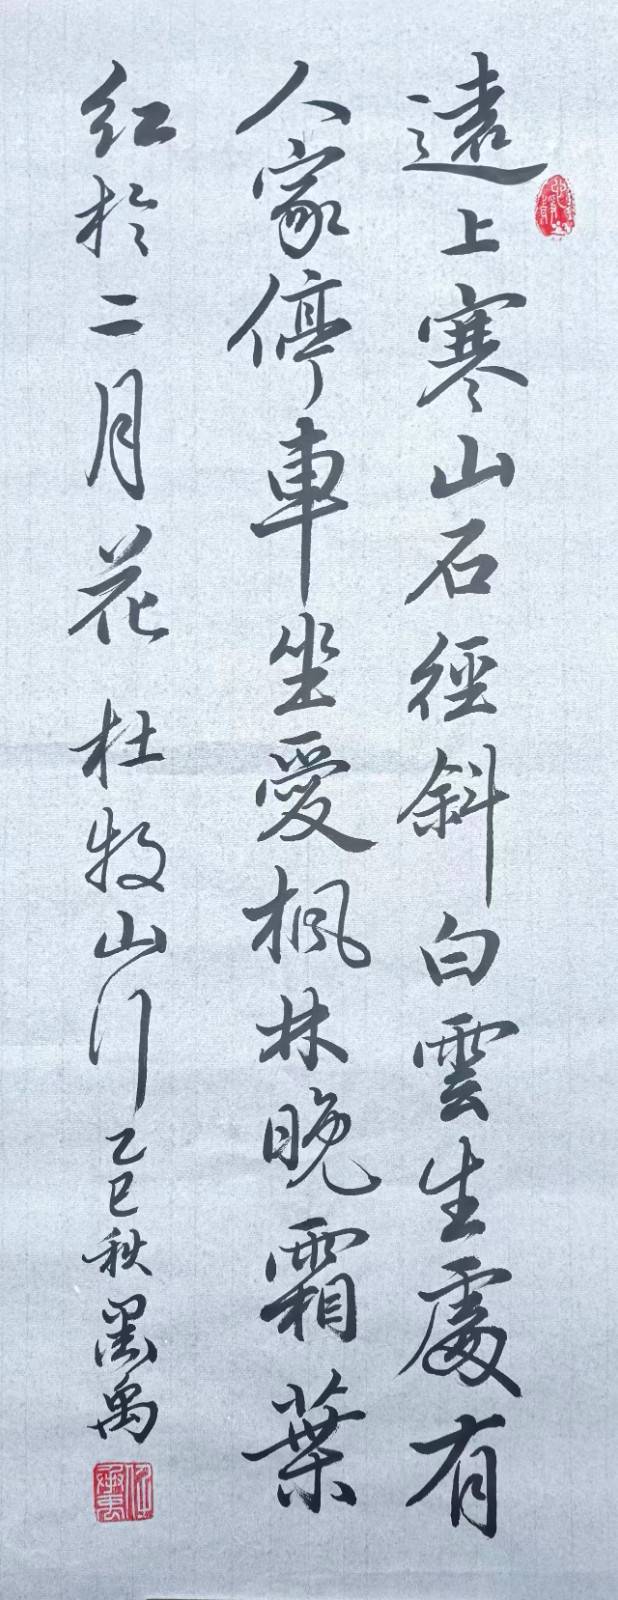 遠上寒山石徑斜白雲生處有
人家停車坐愛楓林晚霜葉
红於二月花 杜牧山行 乙巳秋 墨禹